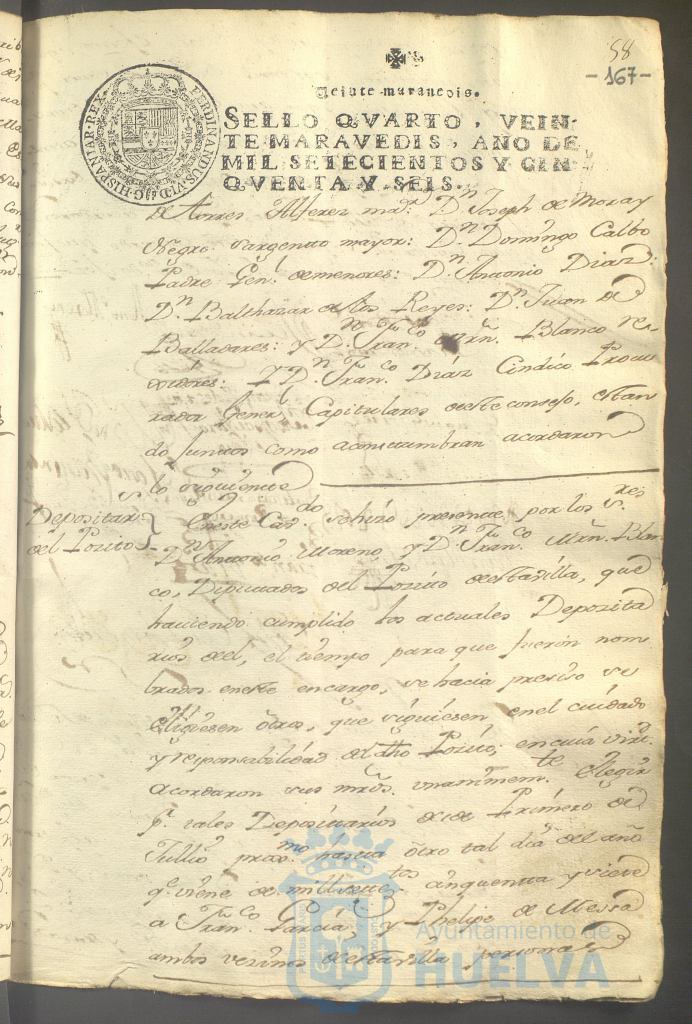 58
-167-
Veinte maravedis.
SELLO QVARTO, VEIN-
TE MARAVEDIS, AÑO DE
MIL SETECIENTOS Y CIN-
QVENTA Y SEIS.
FERDINANDUS VI D G HISPANIAR REX
de Torres Alferez mar. Dn Joseph de Moray
Negro Sargento mayor: Dn Domingo Calbo
Padre Genl. de menores: Dn Antonio Diaz:
Dn Balthazar de los Reyes: Dn Juan de
Balladares: y Dn Franco Mrn. Blanco Re
xidores: Y Dn Franco Diaz Cindico Procu
rador Generl Capitulares deste consejo, estan
do juntos como acostumbran acordaron
lo siguiente
Depositars
del Posito
Eneste Cavdo se hizo presente por los Sres
Dn Antonio Moreno, y Dn Franco Mrn. Blan
co, Diputados del Posito desta villa, que
haviendo cumplido los actuales Deposita
rios del, el tiempo para que fueron nom
brados eneste encargo, se hacia presiso se
eligiesen otros, que siguiesen enel cuidado
y responsabilidad de dho Posito; en cuia virtd.
acordaron sus mrds. unanimemte. Elegir
pr. tales Depositarios desde Primero de
Jullio proxmo hasta otro tal dia del año
qe. viene de mill settos cinquenta y siete
a Franco Garcia, y Phelipe de Messa
ambos vezinos desta villa personas
Ayuntamiento de
HUELVA